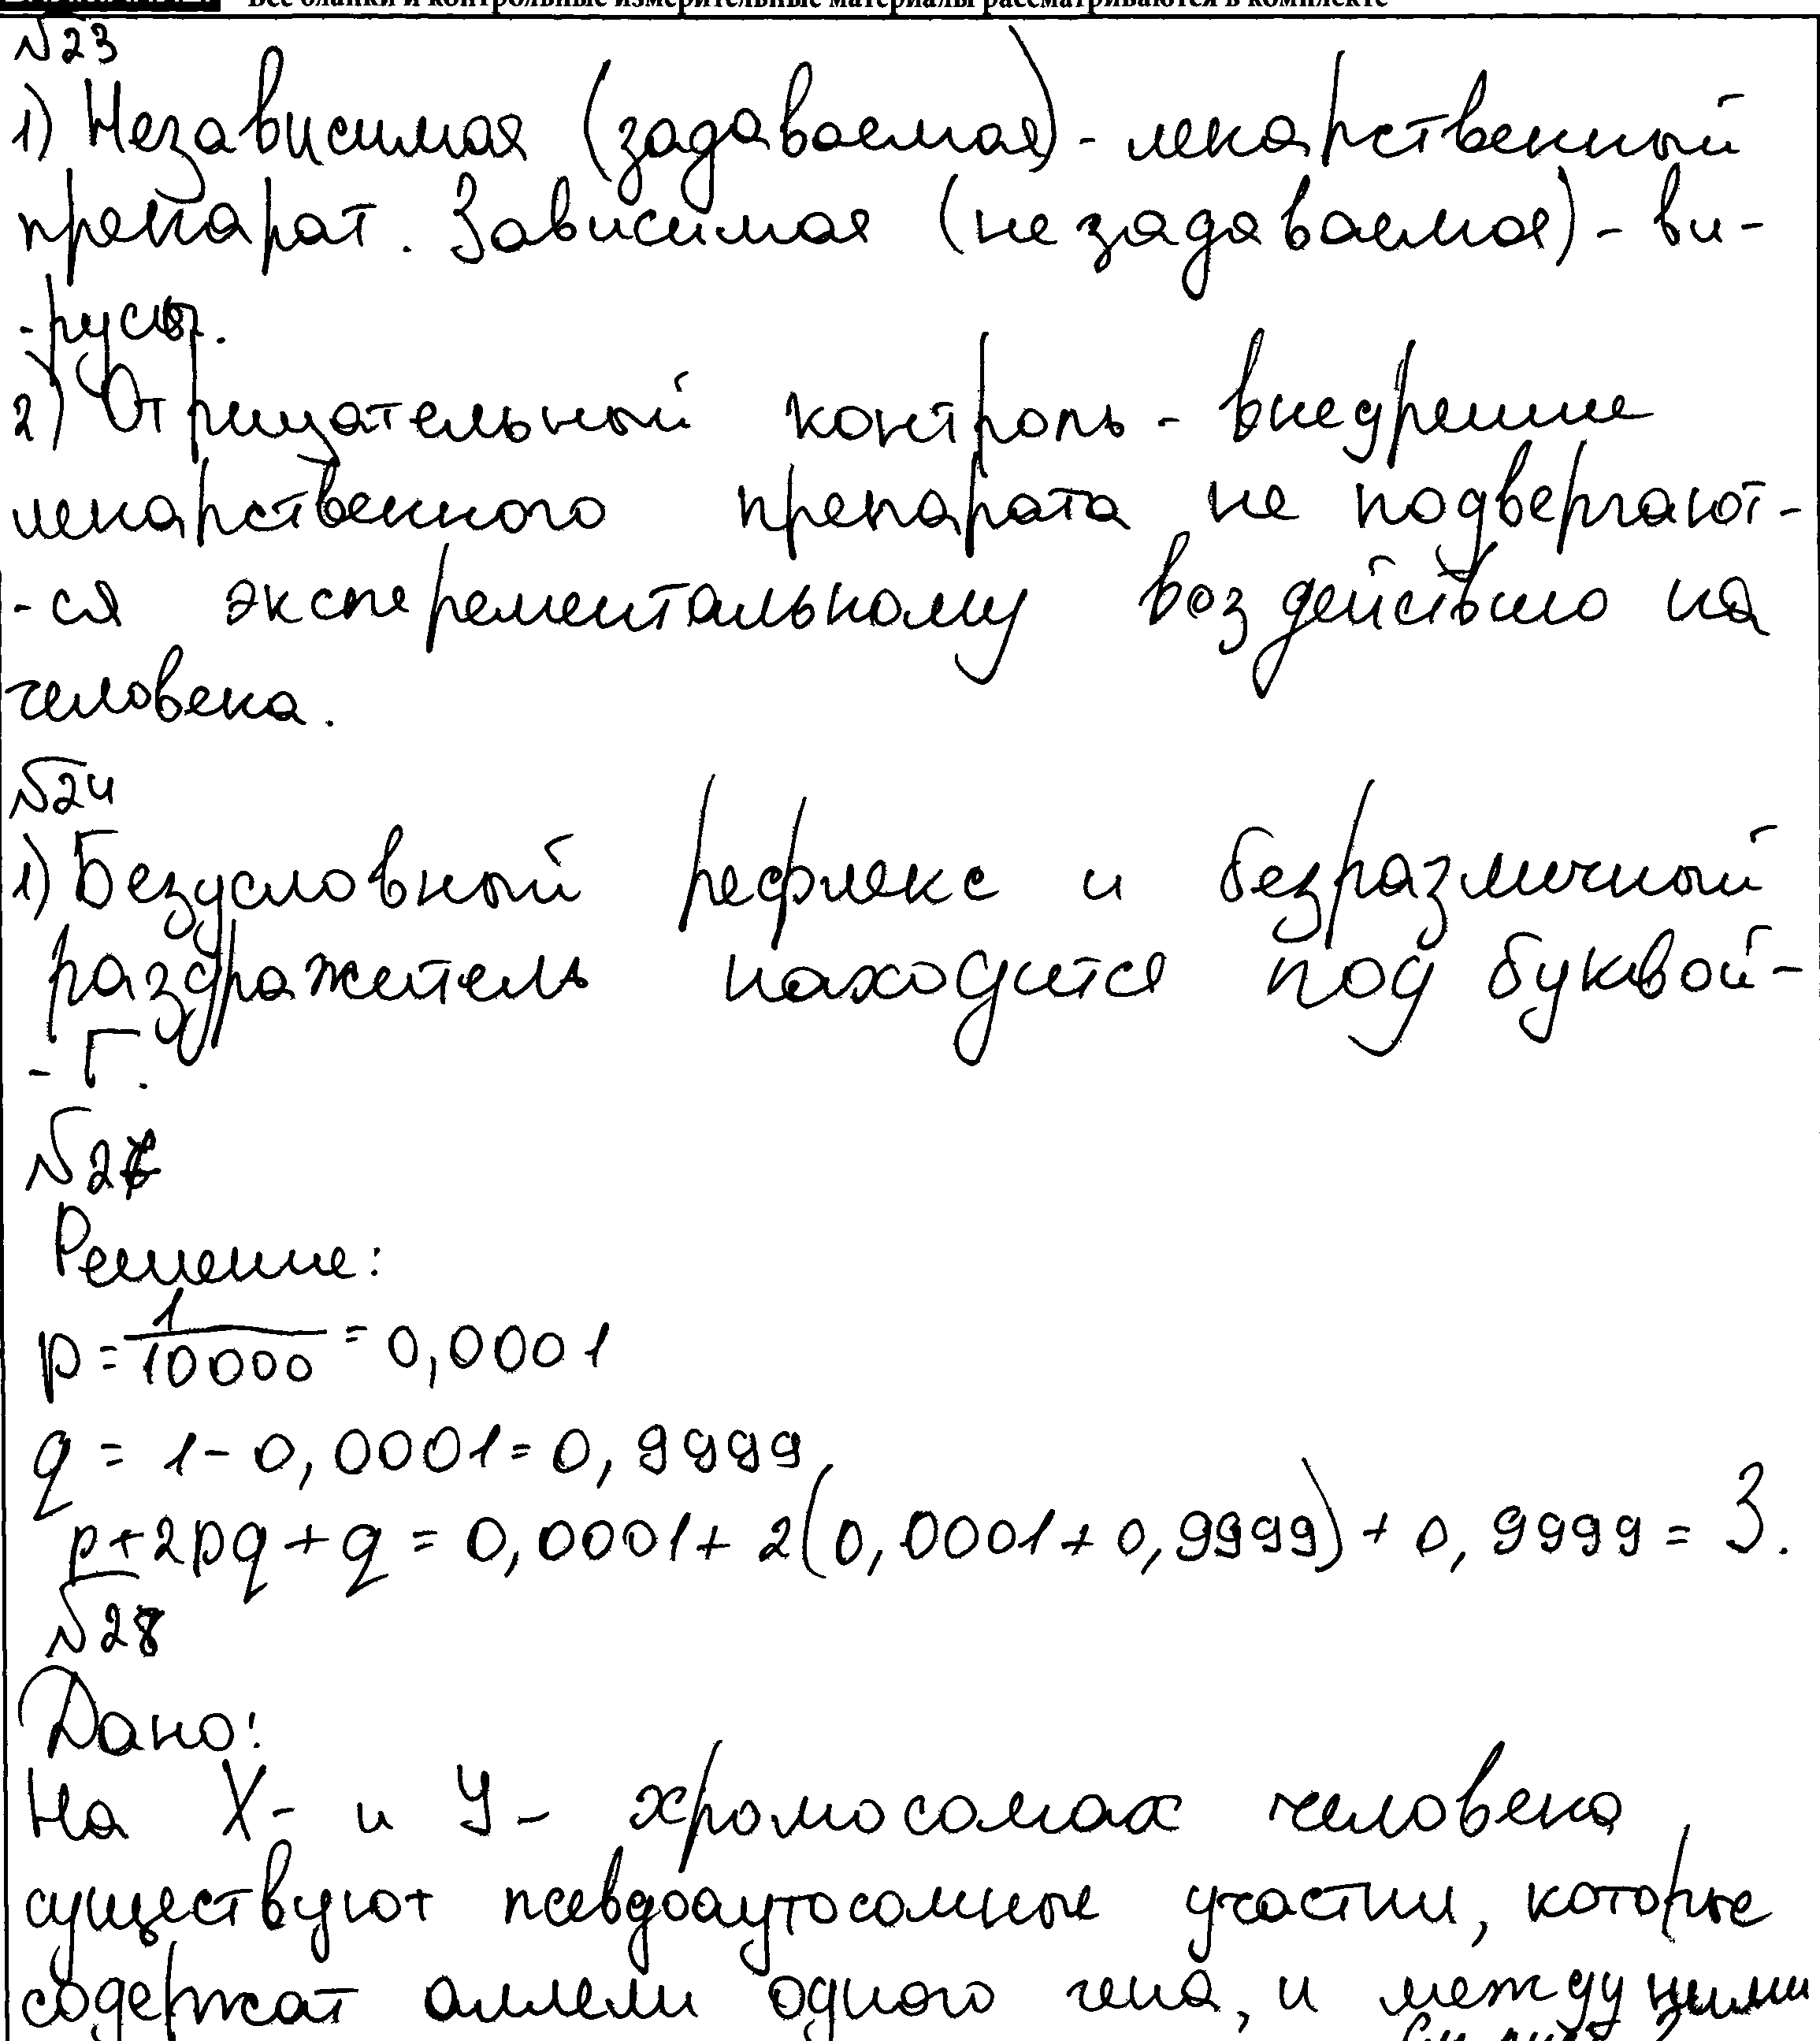 Все бланки и контрольные измерительные материалы рассматриваются в комплекте
№23
1) Независимая (задаваемая) - лекарственный
препарат. Зависимая (не задаваемая) - ви-
-русы.
2) Отрицательный контроль - внедрение
лекарственного препарата не подвергают-
-ся эксперементальному воздействию на
человека.
№24
1) Безусловный рефлекс и безразличный
раздражитель находится под буквой -
- Г.
№27
Решение:
p = 1/10000 = 0,0001
q = 1 - 0,0001 = 0,9999
p + 2pq + q = 0,0001 + 2(0,0001 + 0,9999) + 0,9999 = 3.
№28
Дано:
На X- и У- хромосомах человека
существуют псевдоаутосомные участки, которые
содержат аллели одного гена, и между ними